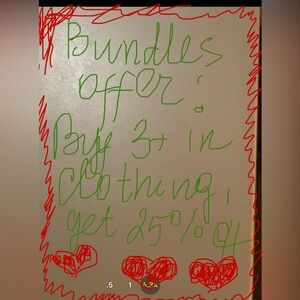 Bundles
offer:
Buy 3+ in
Clothing,
get 25% off
.5 1 4.3x